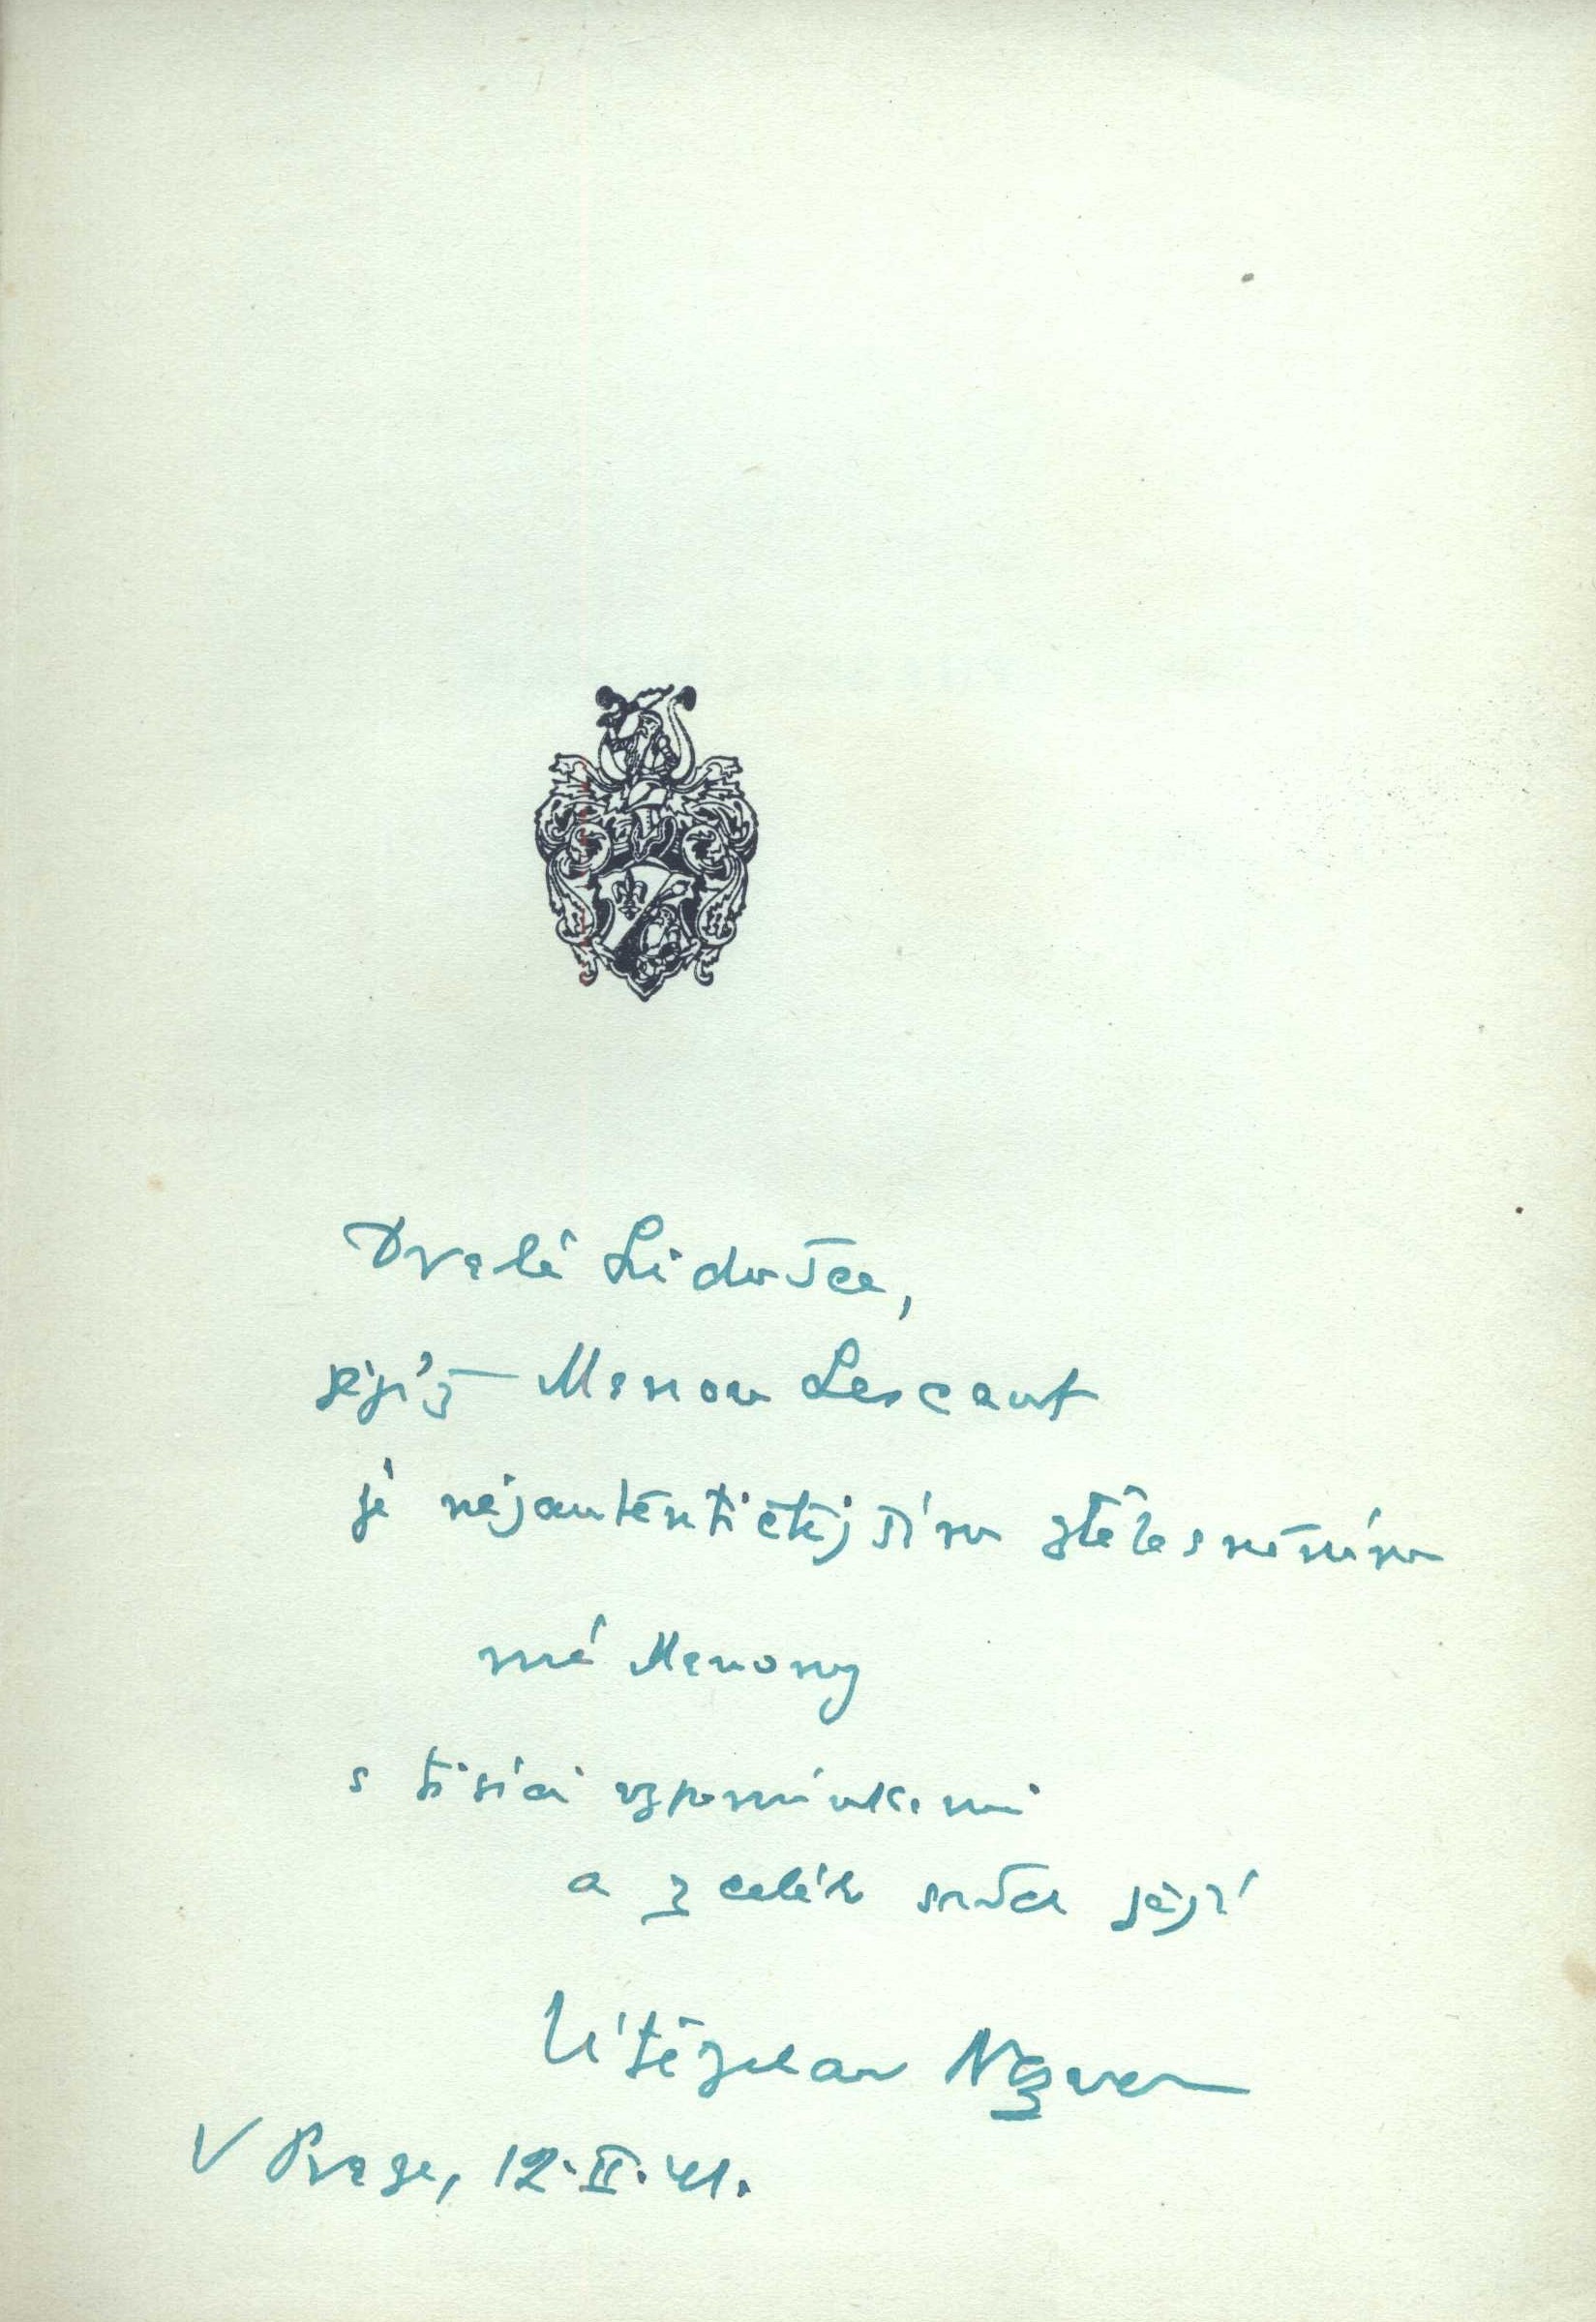 Drahé Lidušce,
jejíž Manon Lescaut
je nejautentičtějším ztělesněním
mé Manony
s tisíci vzpomínkami
a z celého srdce její
Vítězslav Nezval
V Praze, 12. II. 41.